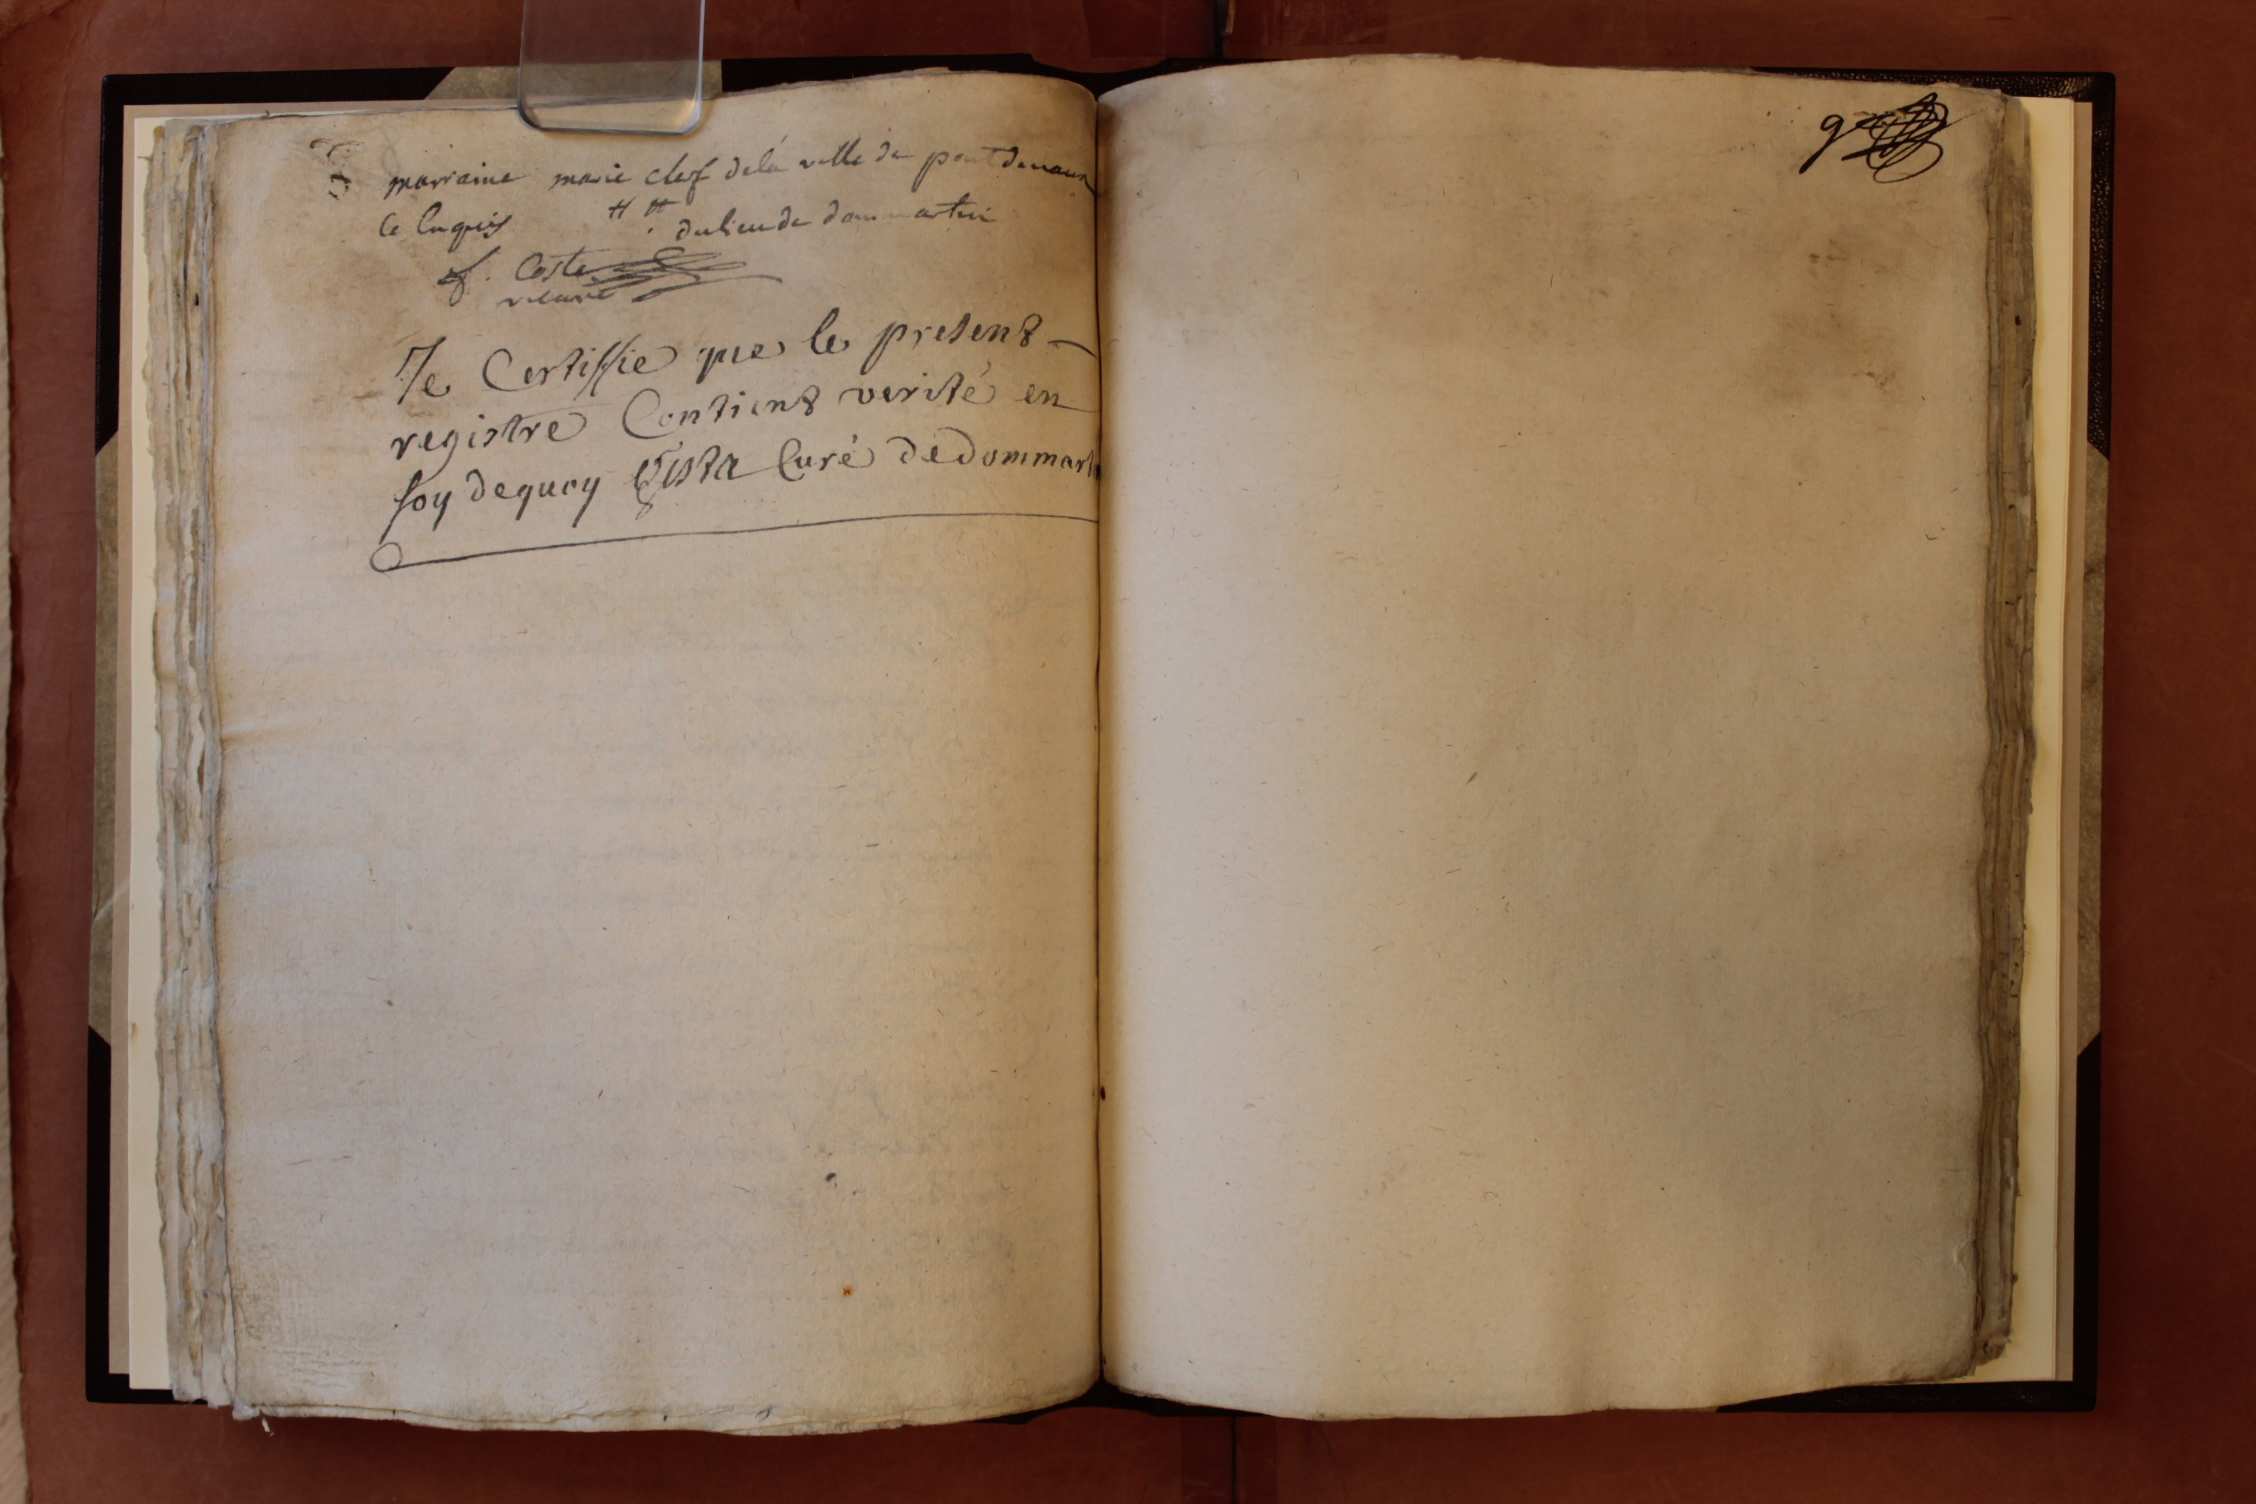 marraine marie clerf dela ville de pontdevaux
ce Enquis # # du lieu de dommartin
f. Coste
vicaire
Je Certiffie que le present
registre Contient verité en
foy dequoy Vista Curé de dommartin
9